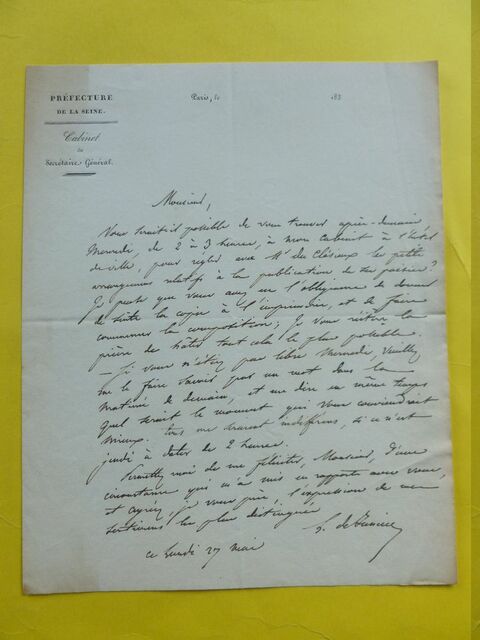 PRÉFECTURE
DE LA SEINE.
Cabinet
du
Secrétaire Général.
Paris, le 183
Monsieur,
Vous serait-il possible de vous trouver après-demain
Mercredi, de 2 à 3 heures, à mon Cabinet à l'hôtel
de ville, pour régler avec Mr du Clésieux les petits
arrangemens relatifs à la publication de ses poésies?
Je pense que vous avez eu l'obligeance de donner
de suite la copie à l'imprimeur, et de faire
commencer la composition; Je vous réitère la
prière de hâter tout cela le plus possible.
— Si vous n'étiez pas libre Mercredi, veuillez
me le faire savoir par un mot dans la
matinée de demain, et me dire en même temps
quel serait le moment qui vous conviendrait
mieux. tous me seront indifférens, si ce n'est
jeudi à dater de 2 heures.
Permettez moi de me féliciter, Monsieur, d'une
circonstance qui m'a mis en rapports avec vous,
et agréez, je vous prie, l'expression de mes
sentimens les plus distingués
ce Lundi 27 mai